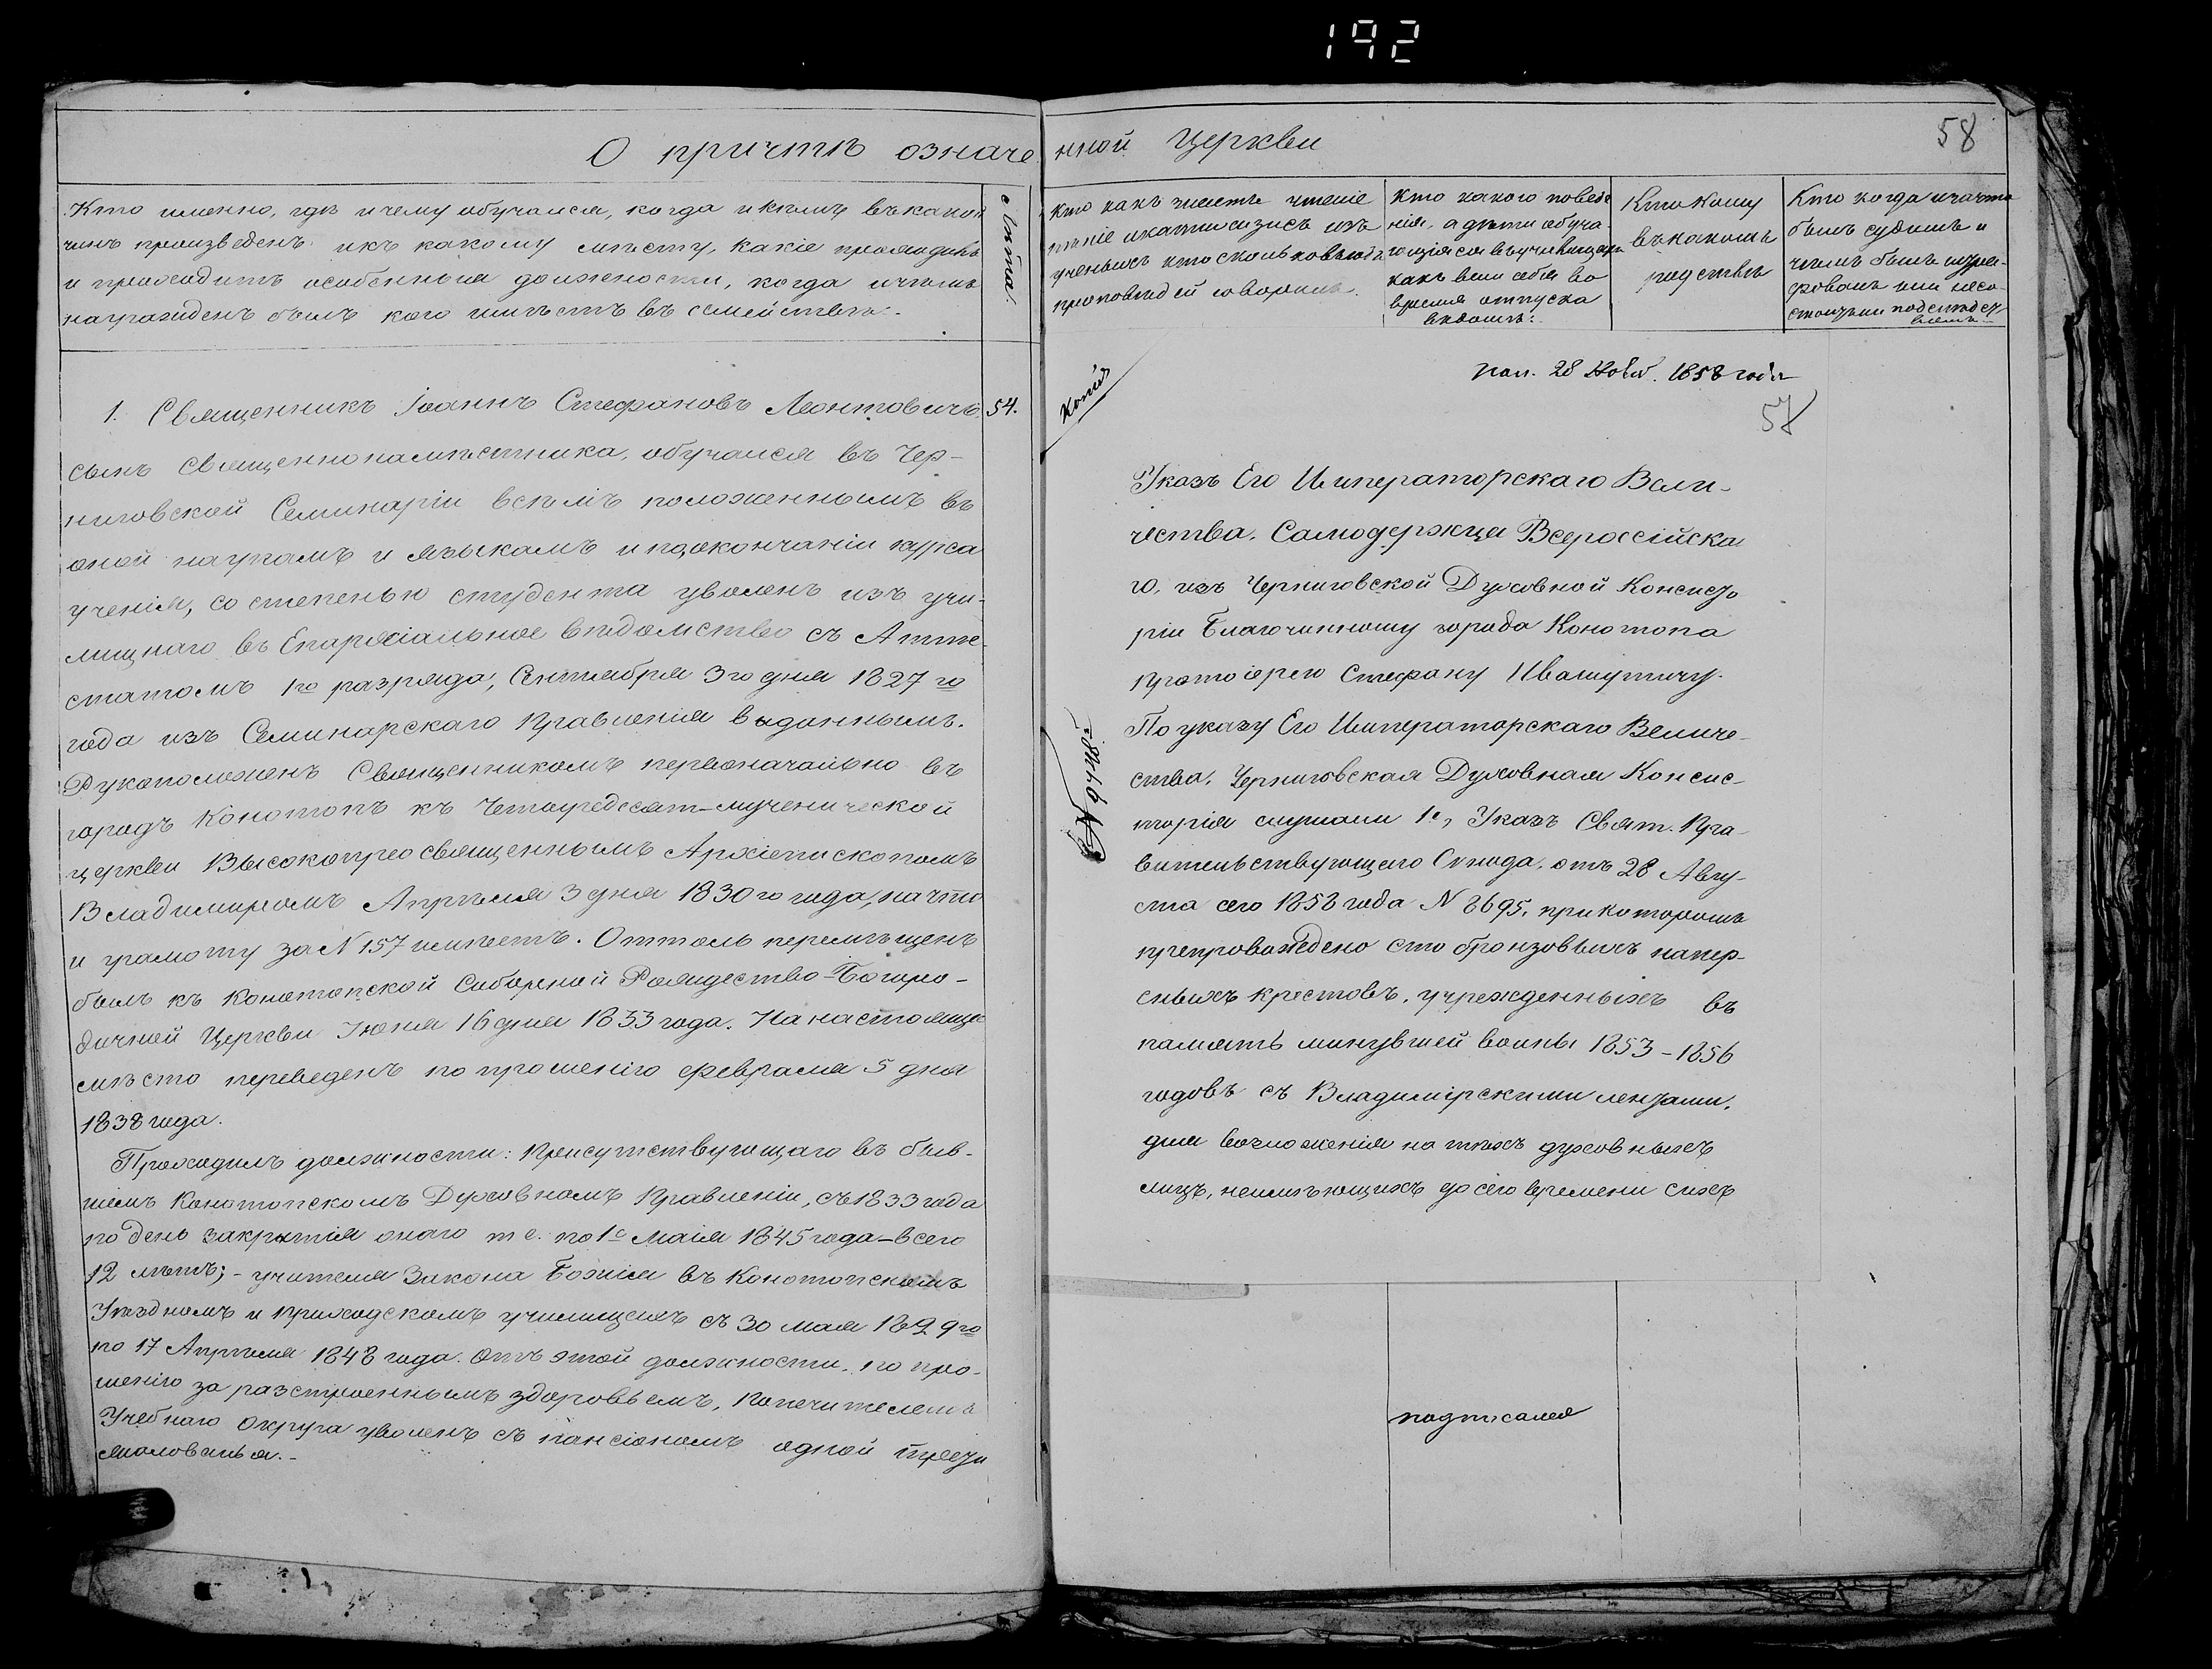 192
О причтѣ означе нной Церкви
58
Кто именно, гдѣ и чему обучался, когда и кѣмъ въ какой
чинъ произведенъ и къ какому мѣсту, какіе проходилъ
и проходитъ особенныя должности, когда и чѣмъ
награжденъ былъ кого имѣетъ въ семействѣ.
Лѣта.
Кто какъ читать чтеніе
пѣніе и катихизисъ изъ
ученыхъ кто сколько въ год.
проповѣдей говорилъ.
Кто какого поведе
нія, а дѣти обуча-
ющіяся въ училищахъ
какъ вели себя во
время отпуска
въ домъ.
Кто кому
въ какомъ
родствѣ
Кто когда и за что
былъ судимъ и
чѣмъ былъ штра-
фованъ или несо-
стоитъ ли подъ слѣдст
віемъ
1. Священникъ Іоаннъ Стефановъ Леонтовичъ
54.
сынъ Священнонамѣстника, обучался въ Чер-
ниговской Семинаріи всѣмъ положеннымъ въ
оной наукамъ и языкамъ и по окончаніи курса
ученія, со степенью студента уволенъ изъ учи-
лищнаго въ Епархіальное вѣдомство съ Атте-
статомъ 1го разряда, Сентября 3го дня 1827го
года изъ Семинарскаго Правленія выданнымъ.
Рукоположенъ Священникомъ первоначально въ
городъ Конотопъ къ Четыредесят-мученической
церкви Высокопреосвященнымъ Архіепископомъ
Владимиромъ Апрѣля 3 дня 1830го года, на что
и грамоту за N 157 имѣетъ. Оттоль перемѣщенъ
былъ къ Конотопской Соборной Рождество-Богоро-
дичной Церкви Іюня 16 дня 1833 года. На настоящее
мѣсто переведенъ по прошенію февраля 5 дня
1838 года.
Проходилъ должности: присутствующаго въ быв-
шемъ Конотопскомъ Духовномъ Правленіи, съ 1833 года
по день закрытія онаго т е. по 1е Маія 1845 года - всего
12 лѣтъ; - учителя Закона Божія въ Конотопскомъ
Уѣздномъ и Приходскомъ училищахъ съ 30 мая 1829го
по 17 Апрѣля 1848 года. Отъ этой должности, по про-
шенію за разстроеннымъ здоровьемъ, Попечителемъ
Учебнаго Округа уволенъ съ пансіономъ одной трети
жалованья.-
пол. 28 Нояб. 1858 года
57
Копія
Указъ Его Императорскаго Вели-
чества, Самодержца Всероссійска
го, изъ Черниговской Духовной Консисто
ріи Благочинному города Конотопа
протоіерею Стефану Ивашутичу.
По указу Его Императорскаго Величе-
ства, Черниговская Духовная Консис-
торія слушали 1е, Указъ Свят. Пра-
вительствующаго Сѵнода, отъ 28 Авгу-
ста сего 1858 года N 8695, при которомъ
препровождено сто бронзовыхъ напер-
сныхъ крестовъ, учрежденныхъ въ
память минувшей войны 1853-1856
годовъ съ Владимірскими лентами,
для возложенія на тѣхъ духовныхъ
лицъ, неимѣющихъ до сего времени сихъ
подписалея